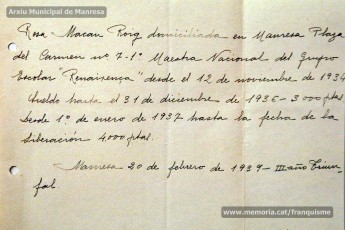 Arxiu Municipal de Manresa
Rosa Macan Roig domiciliada en Manresa Plaza
del Carmen nº 7-1º Maestra Nacional del Grupo
Escolar "Renaixença" desde el 12 de noviembre de 1934
Sueldo hasta el 31 de diciembre de 1936 - 3000 ptas.
Desde 1º de enero de 1937 hasta la fecha de la
liberación 4000 ptas.
Manresa 20 de febrero de 1939 - III año Triun-
fal
www.memoria.cat/franquisme